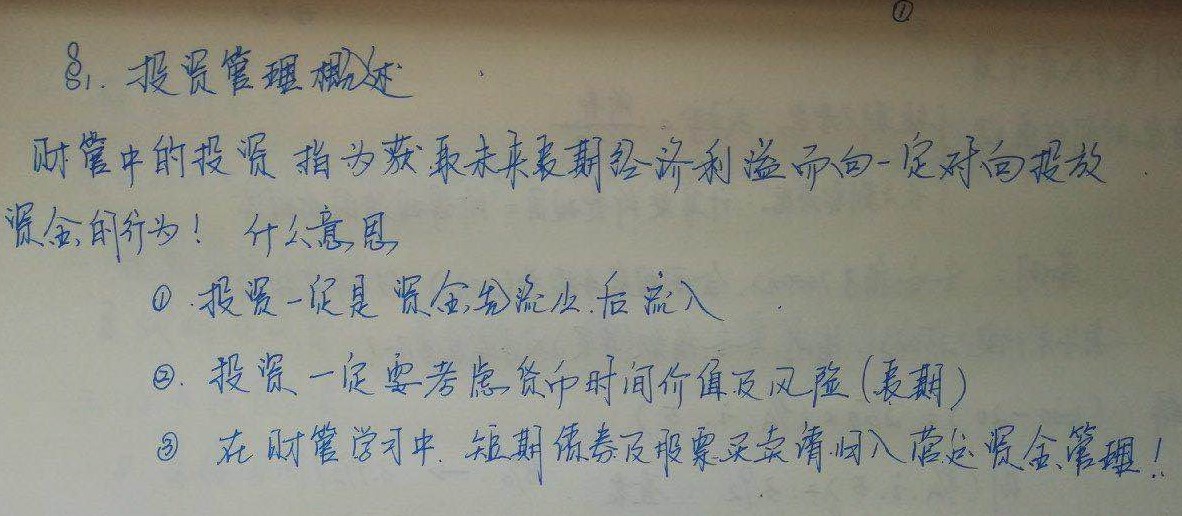 ①
§1. 投资管理概述
财管中的投资 指为获取未来长期经济利溢而向一定对向投放
资金的行为! 什么意思
①.投资一定是资金先流出.后流入
②.投资一定要考虑货币时间价值及风险(长期)
③ 在财管学习中.短期债券及股票买卖请归入营运资金管理!